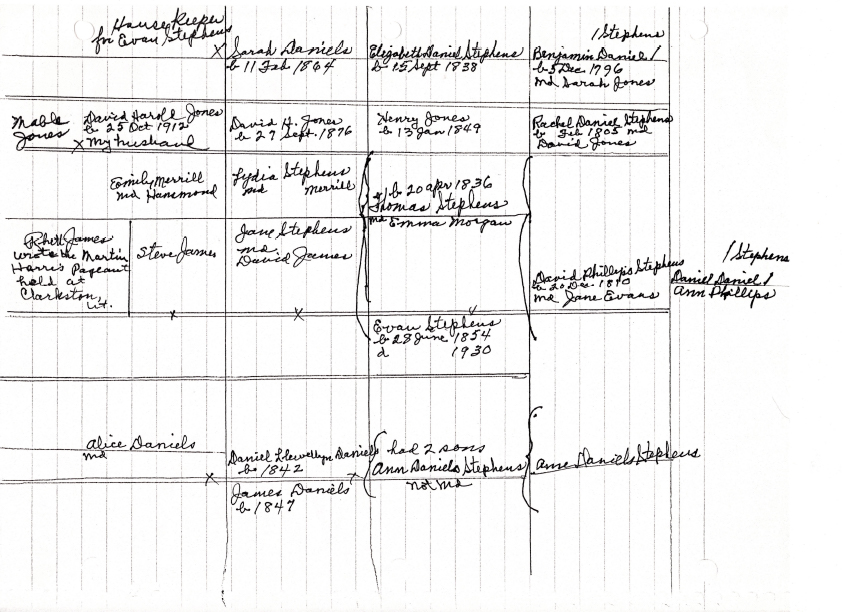 Housekeeper
for Evan Stephens
x Sarah Daniels
b 11 Feb 1864
Elizabeth Daniel Stephens
b 15 Sept 1838
/Stephens
Benjamin Daniel/
b 5 Dec. 1796
md Sarah Jones
Mable
Jones
David Harold Jones
b 25 Oct 1912
x My husband
David H. Jones
b 27 Sept. 1876
Henry Jones
b 13 Jan 1849
Rachel Daniel Stephens
b Feb 1805 md
David Jones
Emily Merrill
md Hammond
Lydia Stephens
md Merrill
b 20 Apr 1836
Thomas Stephens
md Emma Morgan
Rhett James
wrote the Martin
Harris Pageant
held at
Clarkston,
Ut.
Steve James
Jane Stephens
md
David James
David Phillips Stephens
b 20 Dec. 1810
md Jane Evans
/Stephens
Daniel Daniel/
Ann Phillips
x
x
Evan Stephens
b 28 June 1854
d 1930
Alice Daniels
md
x
Daniel Llewellyn Daniels
b 1842
x
James Daniels
b 1847
had 2 sons
Ann Daniels Stephens
not md
Anne Daniels Stephens